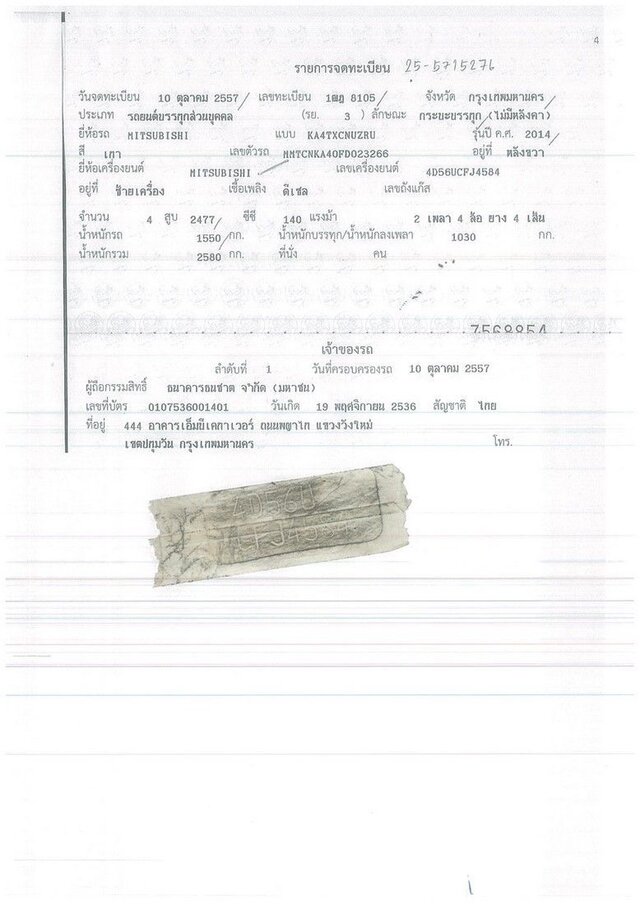 4
รายการจดทะเบียน 25-5715276
วันจดทะเบียน 10 ตุลาคม 2557 เลขทะเบียน 1ฒฎ 8105 จังหวัด กรุงเทพมหานคร
ประเภท รถยนต์บรรทุกส่วนบุคคล (รย. 3 ) ลักษณะ กระบะบรรทุก (ไม่มีหลังคา)
ยี่ห้อรถ MITSUBISHI แบบ KA4TXCNUZRU รุ่นปี ค.ศ. 2014
สี เทา เลขตัวรถ MMTCNKA40FD023266 อยู่ที่ หลังขวา
ยี่ห้อเครื่องยนต์ MITSUBISHI เลขเครื่องยนต์ 4D56UCFJ4584
อยู่ที่ ซ้ายเครื่อง เชื้อเพลิง ดีเซล เลขถังแก๊ส
จำนวน 4 สูบ 2477 ซีซี 140 แรงม้า 2 เพลา 4 ล้อ ยาง 4 เส้น
น้ำหนักรถ 1550 กก. น้ำหนักบรรทุก/น้ำหนักลงเพลา 1030 กก.
น้ำหนักรวม 2580 กก. ที่นั่ง คน
7568854
เจ้าของรถ
ลำดับที่ 1 วันที่ครอบครองรถ 10 ตุลาคม 2557
ผู้ถือกรรมสิทธิ์ ธนาคารธนชาต จำกัด (มหาชน)
เลขที่บัตร 0107536001401 วันเกิด 19 พฤศจิกายน 2536 สัญชาติ ไทย
ที่อยู่ 444 อาคารเอ็มบีเคทาวเวอร์ ถนนพญาไท แขวงวังใหม่
เขตปทุมวัน กรุงเทพมหานคร โทร.
4D56U